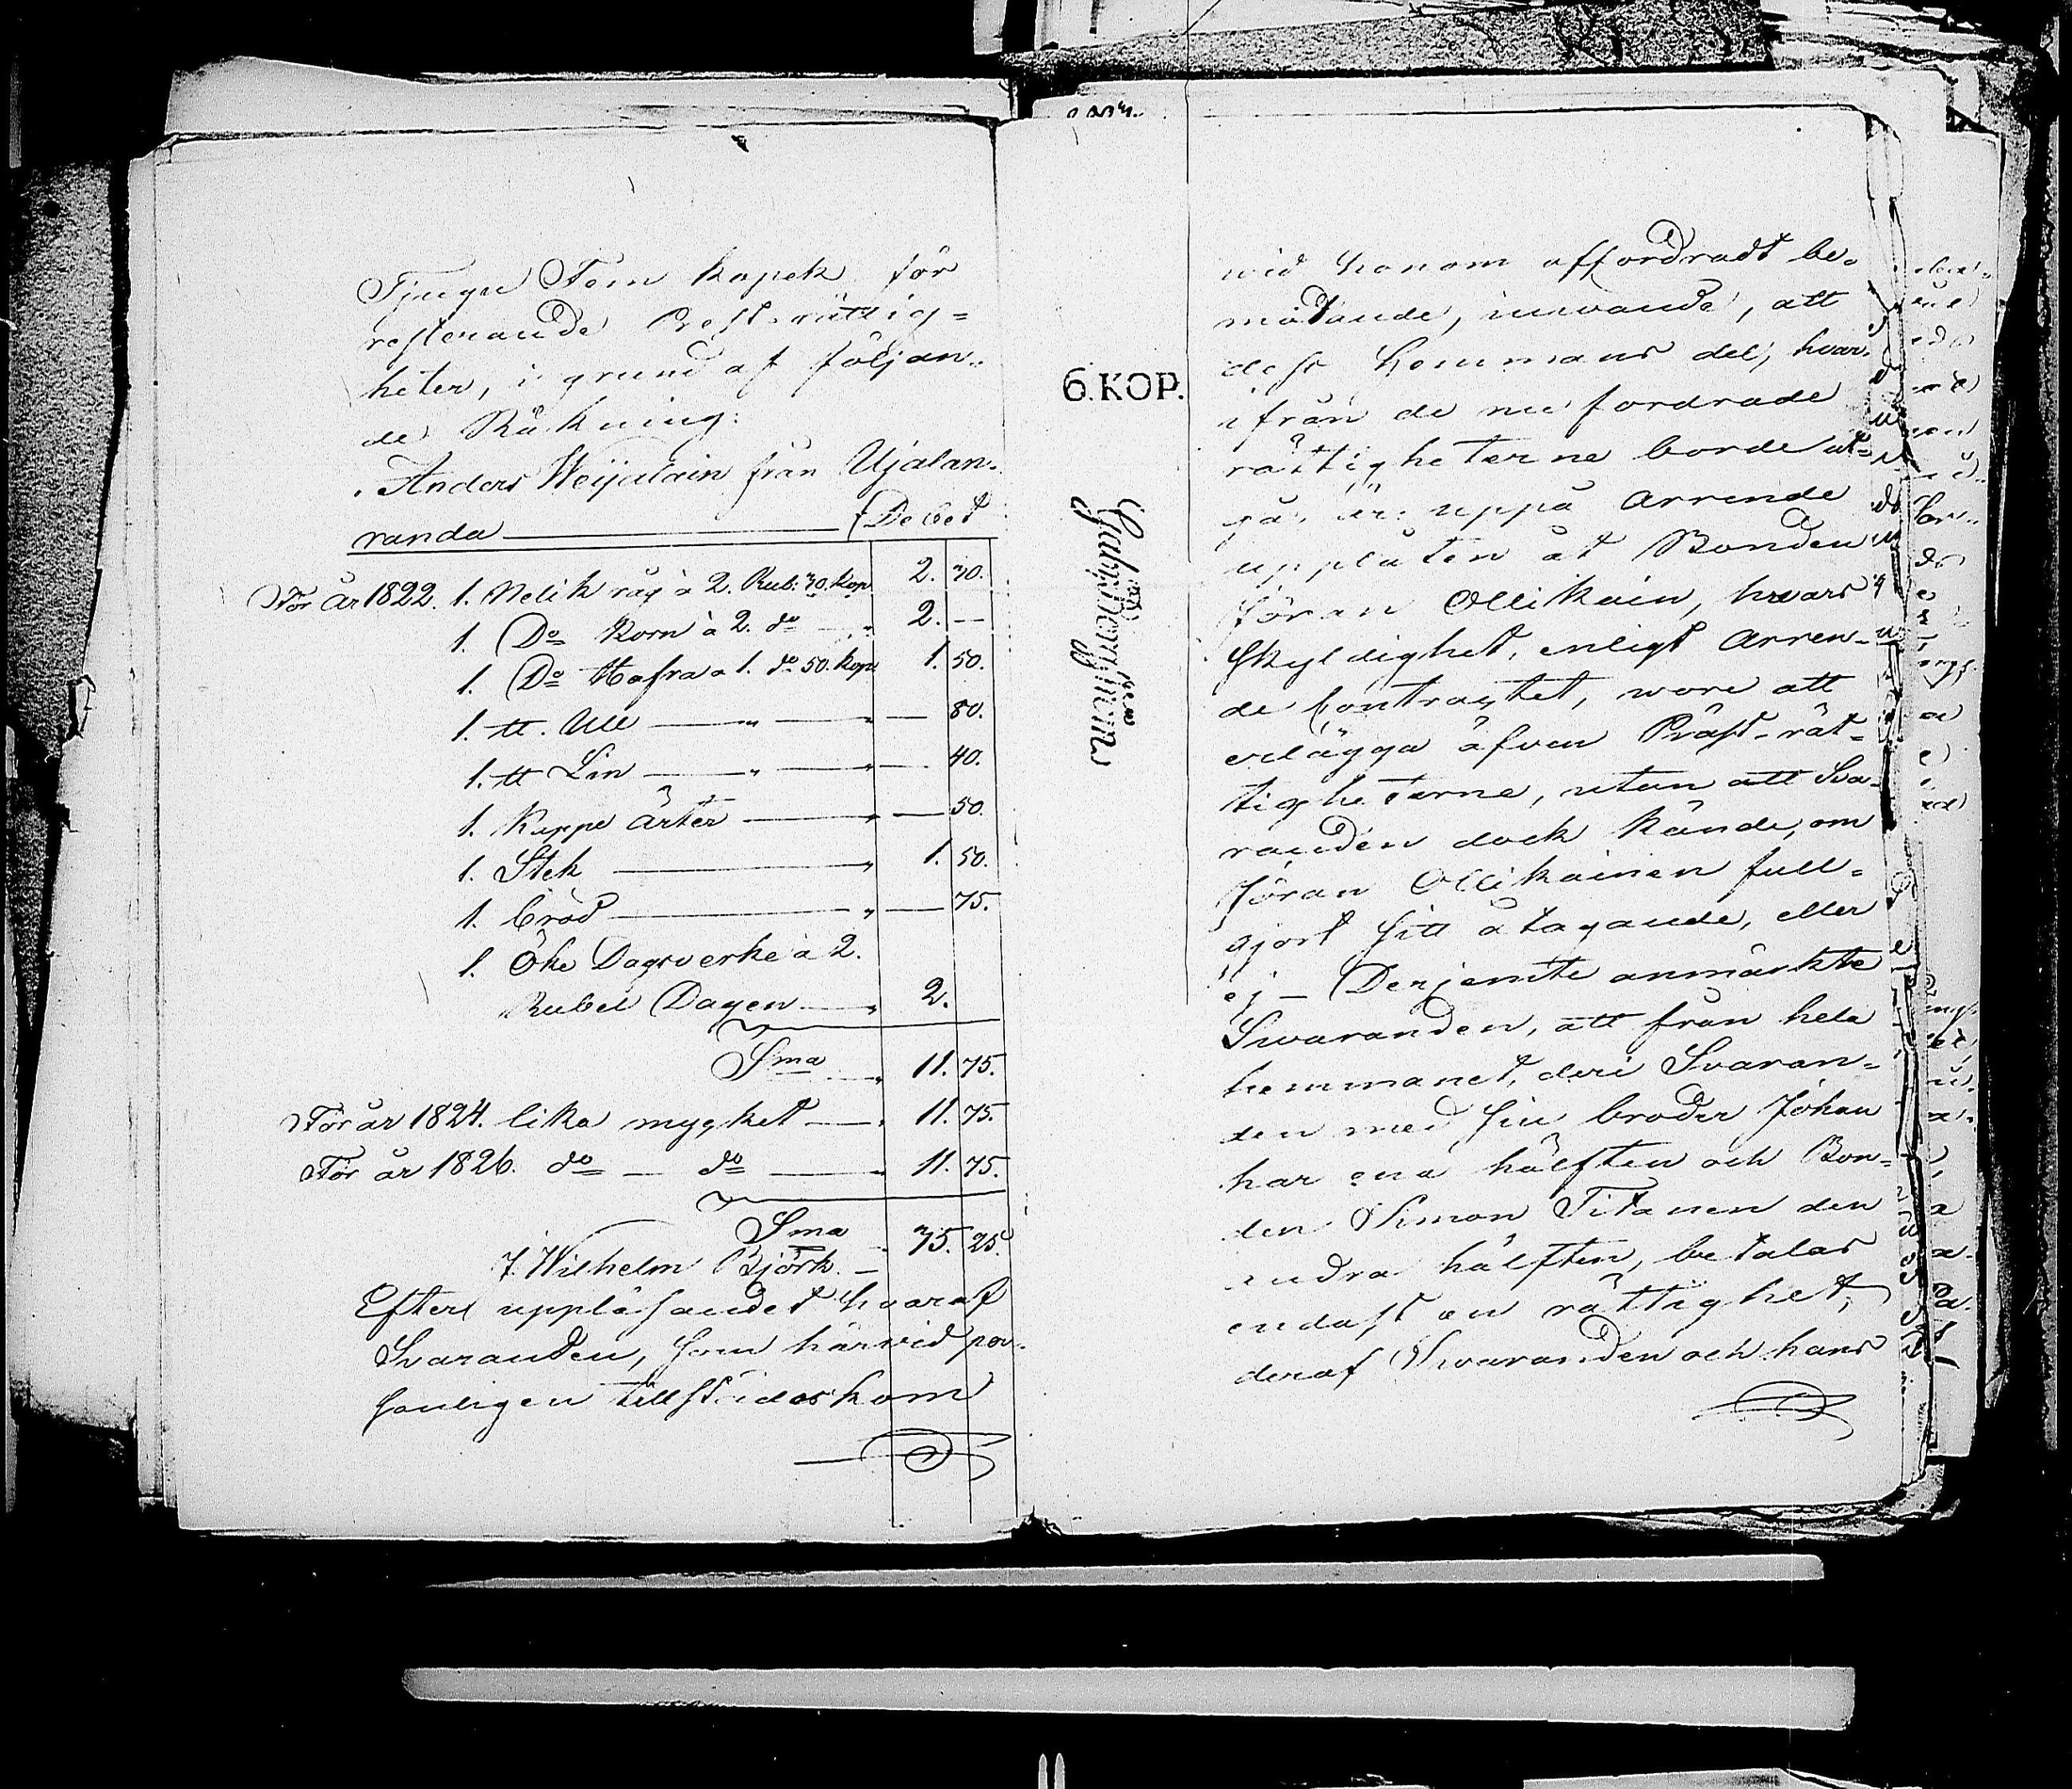 Tjugu Fem kopek för
resterande Prest-rättig=
heter, i grund af följan-
de Räkning:
Anders Weijalain från Ujalan-
randa Debet
För år 1822. 1. Nelik råg à 2. Rub: 30. kop 2. 30.
1. Do Korn à 2. do 2. —
1. Do Hafra a 1. do 50. kop 1. 50.
1. tt. Ull — 80.
1. tt Lin — 40.
1. Kappe ärter — 50.
1. Stek 1. 50.
1. bröd — 75.
1. Öke Dagsverke à 2.
Rubel Dagen 2.
Sma 11. 75.
För år 1824. lika mygket 11. 75.
För år 1826. do — do 11. 75.
Sma 35. 25.
J. Wilhelm Björk.
Efter uppläsandet hvaraf
Svaranden, som härvid per-
sonligen tillstädes kom
6. KOP.
wid honom affordradt be-
mötande, inwände, att
dess hemmans del, hvar-
ifrån de nu fordrade
rättigheterne borde ut-
gå, är uppå arrende
upplåten åt Bonden
Jöran Ollikain, hvars
skyldighet, enligt Arren-
de Contractet, wore att
erlägga äfven Präst-rät-
tigheterne, utan att Sva-
randen dock kände, om
Jöran Ollikainen full-
gjort sitt åtagande, eller
ej – Derjemte anmärkte
Swaranden, att från hela
hemmanet, deri Svaran-
den med sin broder Johan
har ena hälften och Bon-
den Simon Titanen den
andra hälften, betalas
endast en rättighet,
deraf Swaranden och hans